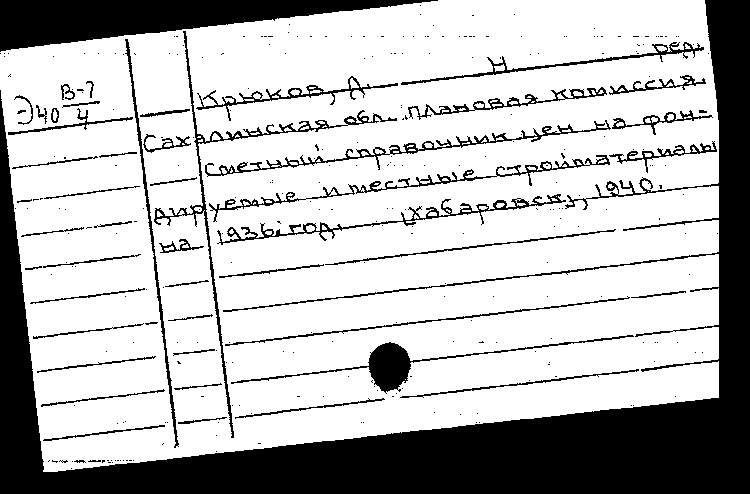 В-7
Э40 4
Крюков, А. Н ред.
Сахалинская обл. Плановая комиссия.
Сметный справочник цен на фон-
дируемые и местные стройматериалы
на 1936 год. [Хабаровск], 1940.